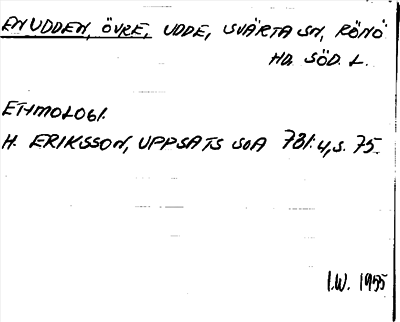 ENUDDEN, ÖVRE, UDDE, SVÄRTA SN, RÖNÖ
HD. SÖD. L.
ETYMOLOGI.
H. ERIKSSON, UPPSATS SOA 781:4, S. 75.
I.W. 1955